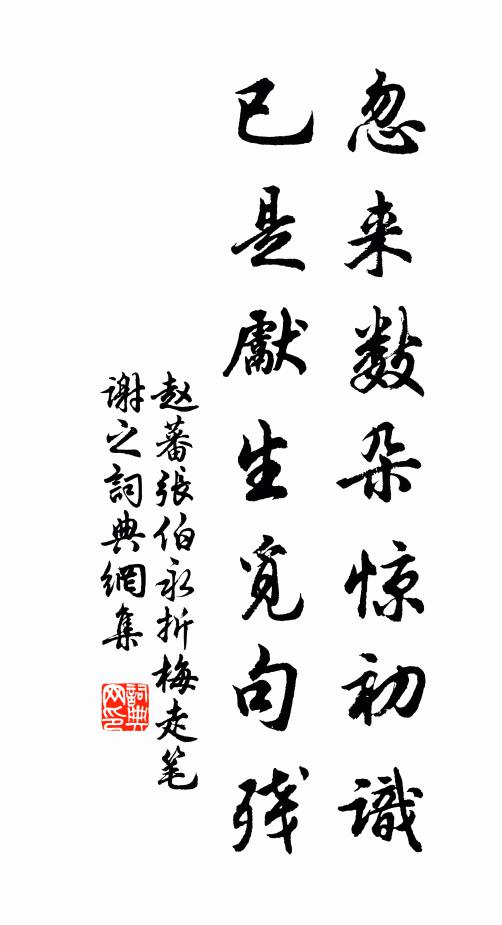 忽来数朵惊初識
已是獻生覓句残
赵蕃張伯永折梅走笔
谢之詞典網集
詞典
网印